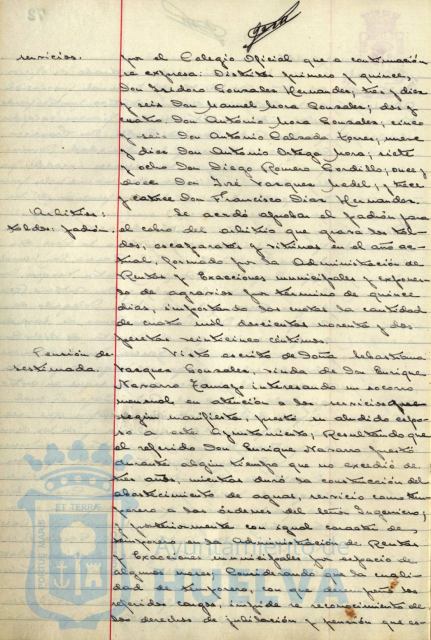 servicios.
por el Colegio Oficial que a continuación
se expresa: Distritos primero y quince,
Don Isidoro Gonzalez Hernandez, tres y diez
y seis Don Manuel Mora Gonzalez; dos y
cuatro Don Antonio Mora Gonzalez; cinco
y seis Don Antonio Calzada Torres; nueve
y diez Don Antonio Ortega Mora; siete
y ocho Don Diego Romero Gordillo; once y
doce Don José Vazquez Medel; y trece
y catorce Don Francisco Diaz Hernandez.
Arbitrios:
toldos: padrón.
Se acordó aprobar el padrón para
el cobro del arbitrio que grava los tol-
dos, escaparates y vitrinas en el año ac-
tual, formado por la Administración de
Rentas y Exacciones municipales y
de agravios por término de quince
días, importando las cuotas la cantidad
de cuatro mil doscientas noventa y dos
pesetas veinticinco céntimos.
Pensión de-
sestimada.
Visto escrito de Doña Sebastiana
Vazquez Gonzalez, viuda de Don Enrique
Navarro Tamayo interesando un socorro
mensual en atención a los servicios que
según manifiesta, prestó su aludido espo-
so a este Ayuntamiento; Resultando que
el referido Don Enrique Navarro prestó
durante algún tiempo que no excedió de
tres años, mientras duró la construcción del
abastecimiento de aguas, servicio como tem-
porero a las órdenes del Señor Ingeniero;
y posteriormente con igual caracter de
temporero en la Administración de Rentas
y Exacciones municipales por espacio de
algunos meses; Considerando que la cuali-
dad de temporero, con que desempeñó los
referidos cargos, impide el reconocimiento de
los derechos de jubilación y pensión que es-
PORTUS MARIS
ET TERRAE
Ayuntamiento de
HUELVA